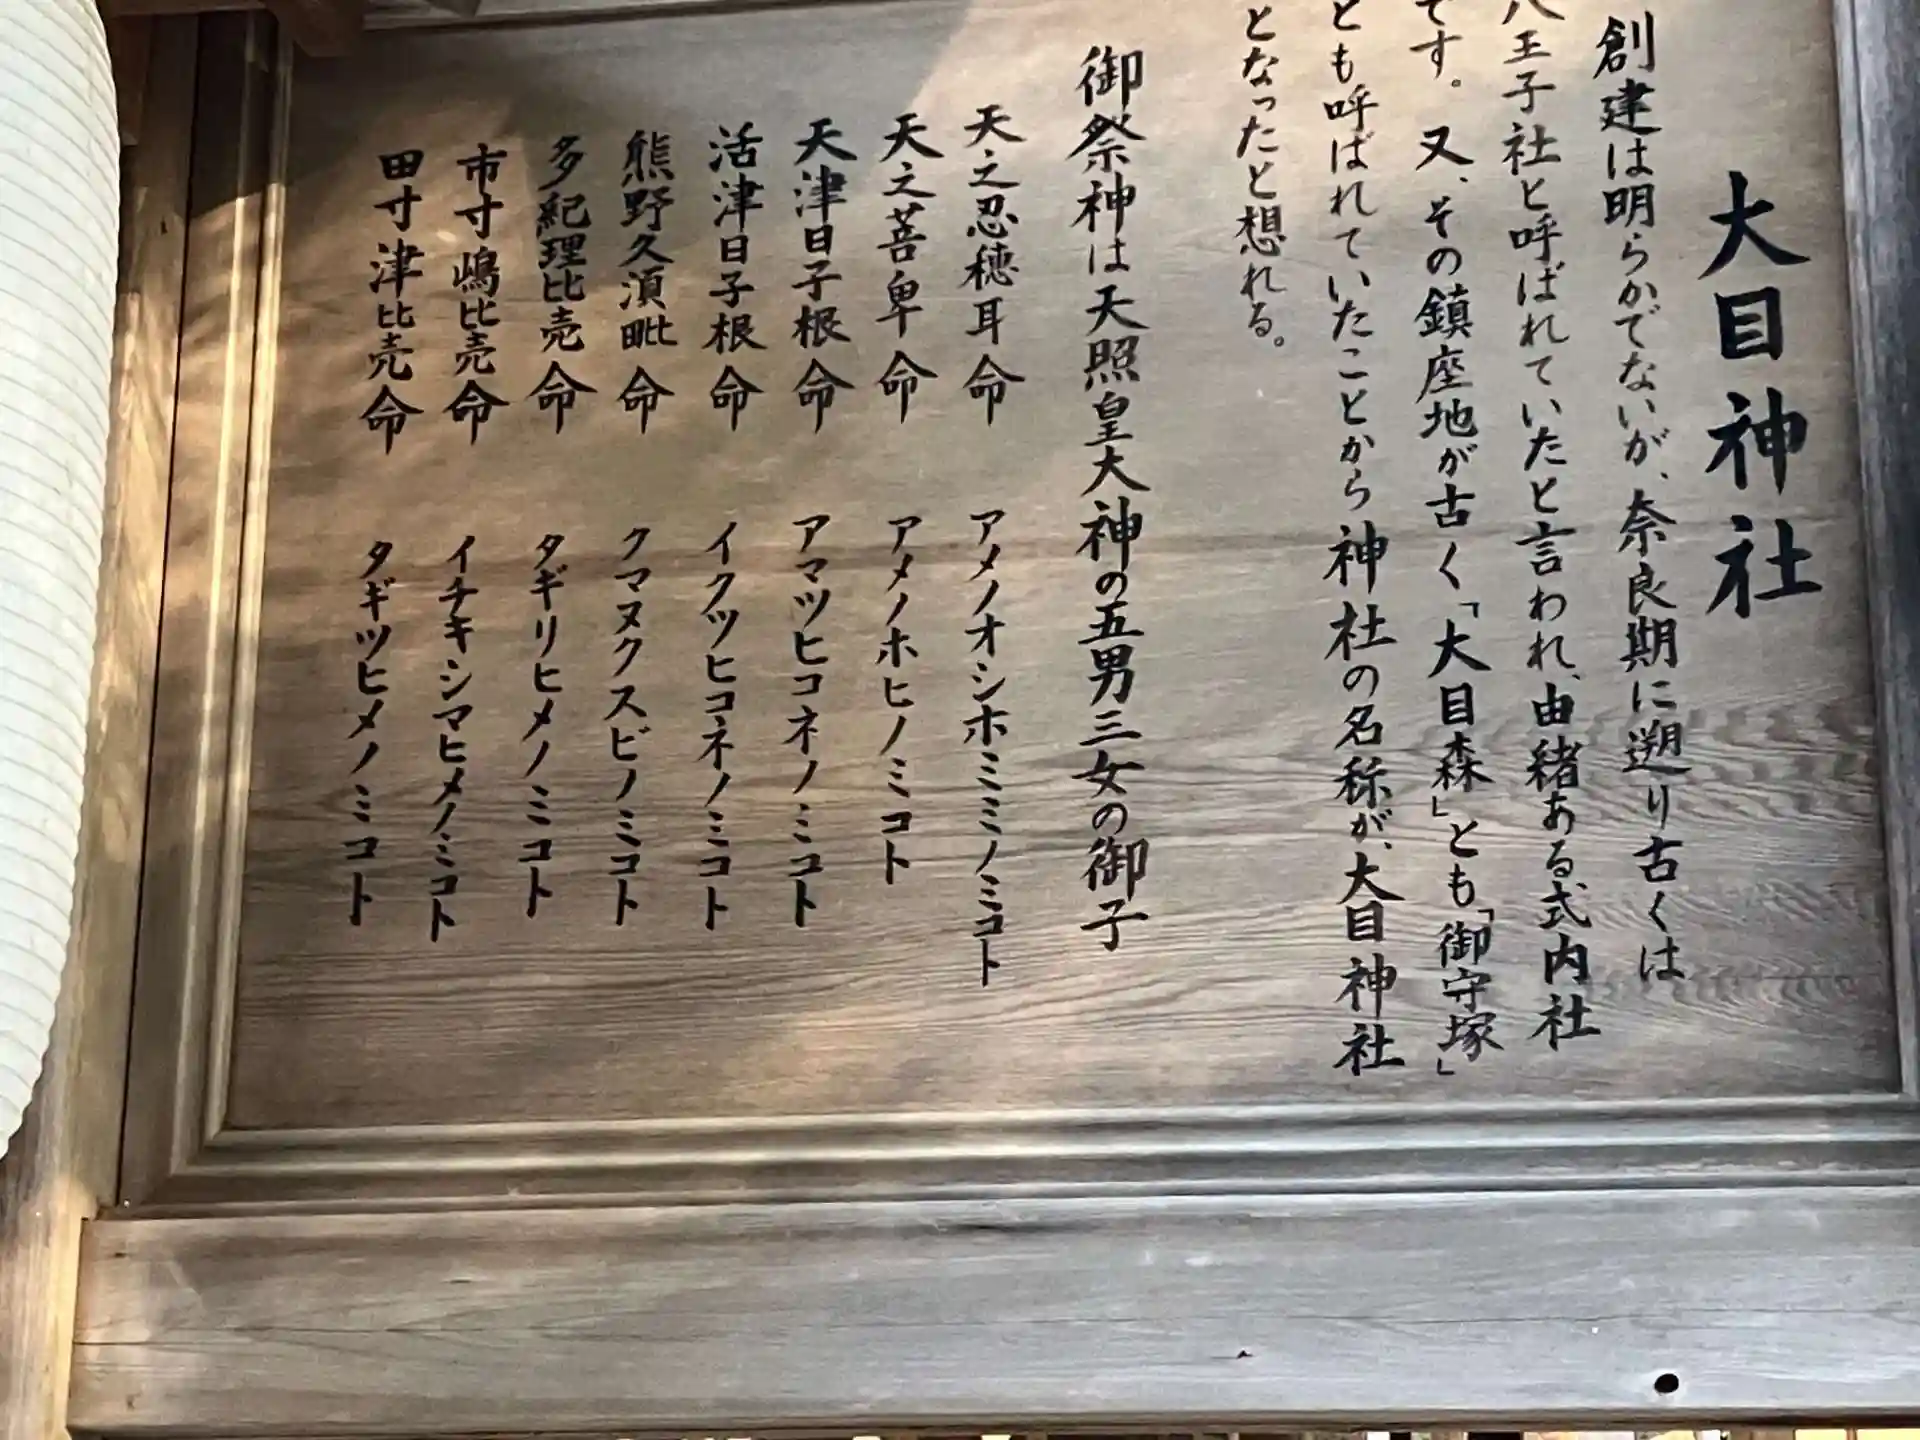 大目神社
創建は明らかでないが、奈良期に遡り古くは
八王子社と呼ばれていたと言われ、由緒ある式内社
です。又、その鎮座地が古く「大目森」とも「御守塚」
とも呼ばれていたことから神社の名称が、大目神社
となったと想れる。
御祭神は天照皇大神の五男三女の御子
天之忍穂耳命 アメノオシホミミノミコト
天之菩卑命 アメノホヒノミコト
天津日子根命 アマツヒコネノミコト
活津日子根命 イクツヒコネノミコト
熊野久須毗命 クマヌクスビノミコト
多紀理比売命 タギリヒメノミコト
市寸嶋比売命 イチキシマヒメノミコト
田寸津比売命 タギツヒメノミコト